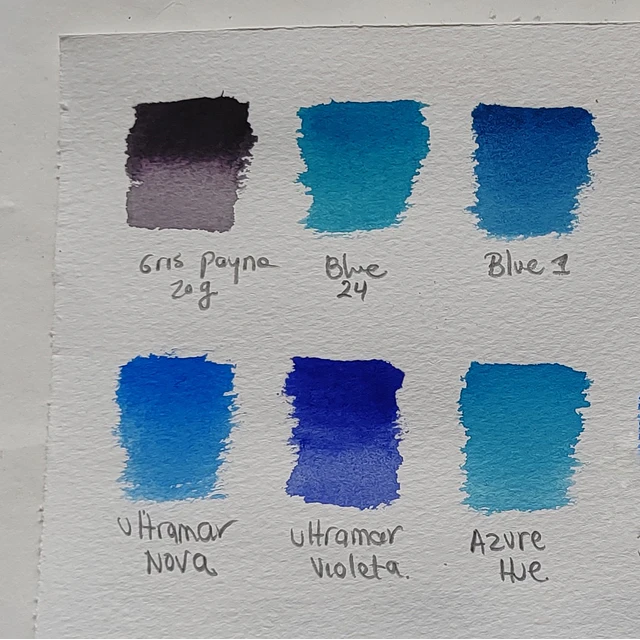 Gris Payne
20g
Blue
24
Blue 1
Ultramar
Nova
Ultramar
Violeta.
Azure
Hue